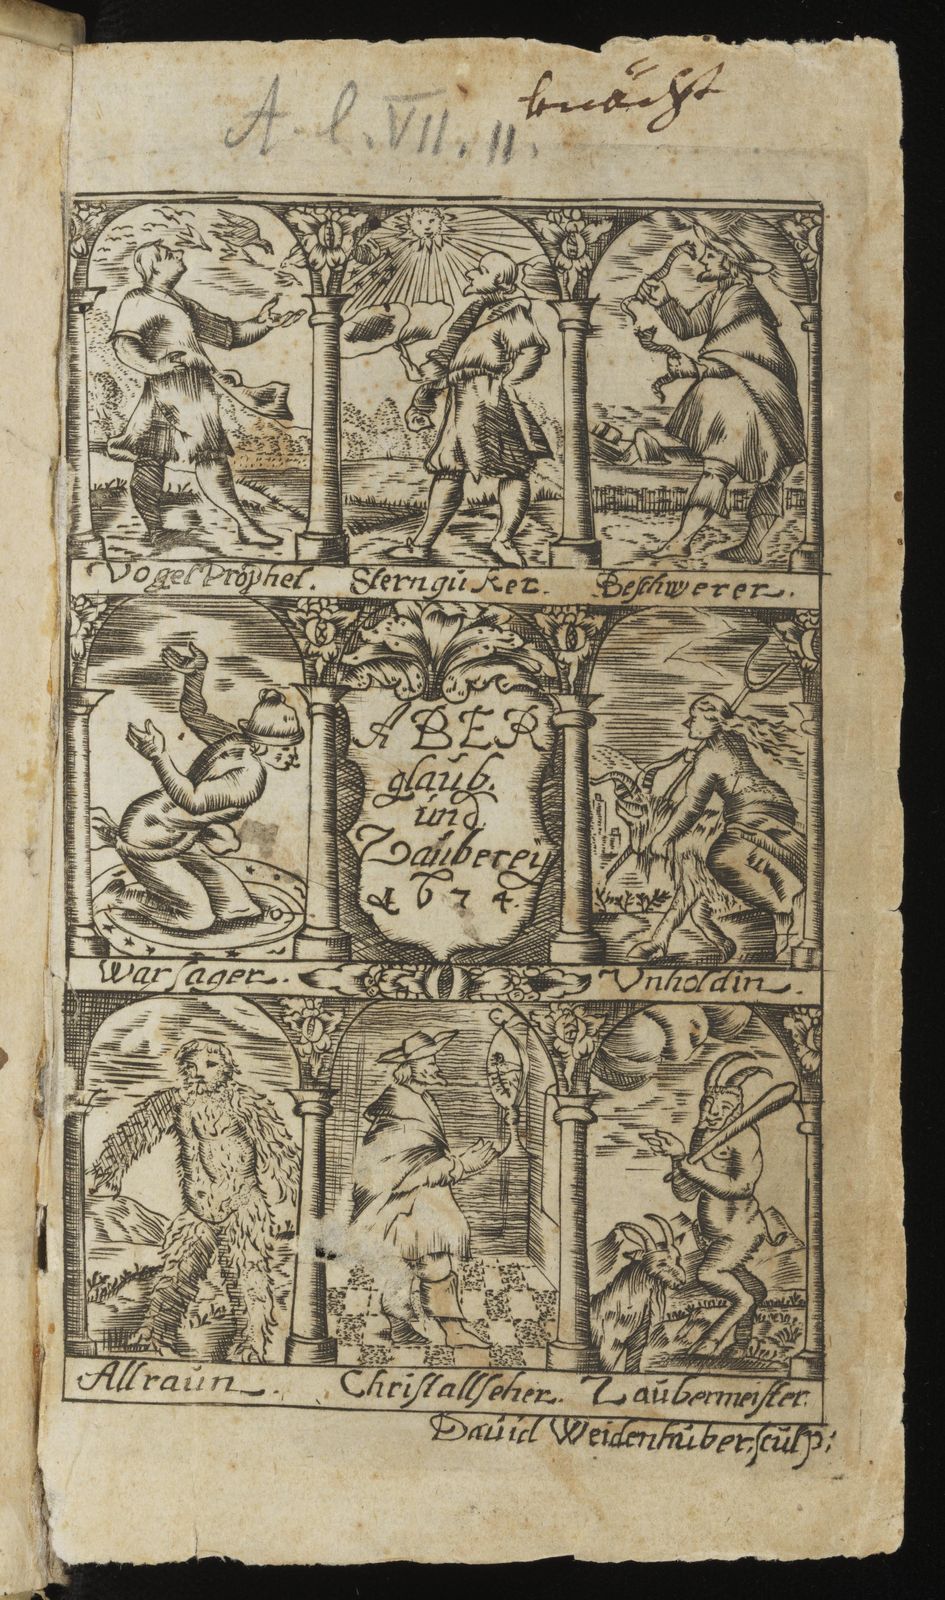 A. l. VII. 11.
Vogel Prophet. Sterngücker. Beschwerer.
ABER
glaub.
und
Zauberey
1674.
Warsager. Unholdin.
Allraun. Christallseher. Zaubermeister.
David Weidenhuber, sculp: